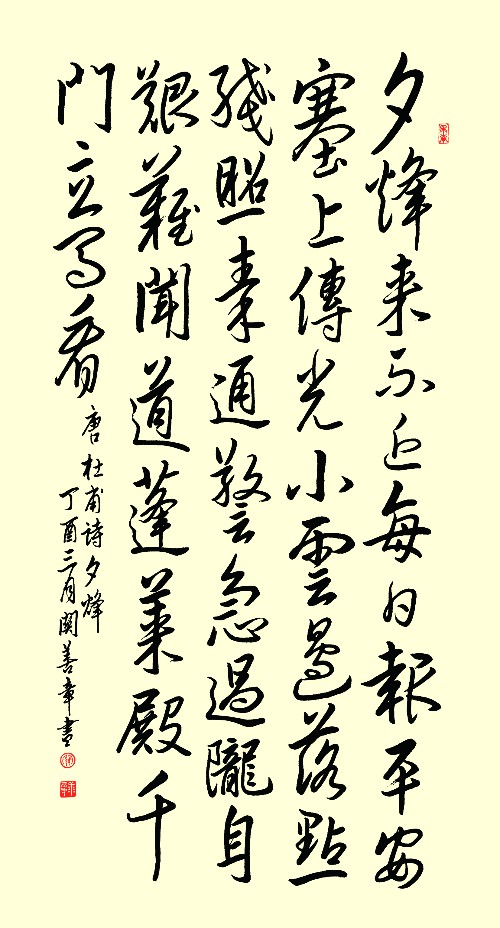 夕烽来不近每日報平安
塞上傳光小雲邊落點
殘照秦通警急過隴自
艱難聞道蓬萊殿千
門立馬看
唐杜甫诗夕烽
丁酉三月関善章書